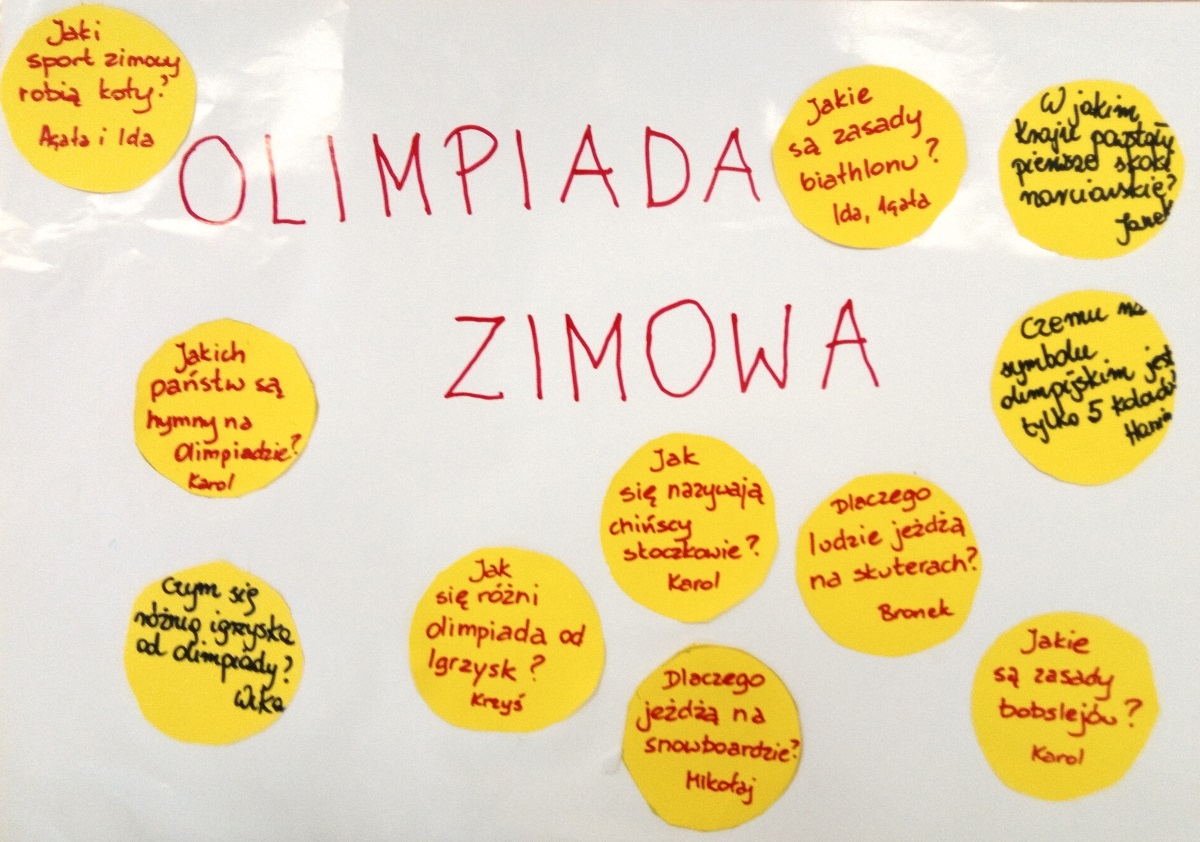 Jaki
sport zimowy
robią koty?
Agata i Ida
OLIMPIADA
ZIMOWA
Jakie
są zasady
biathlonu?
Ida, Agata
W jakim
kraju powstały
pierwsze skoki
narciarskie?
Janek
Jakich
państw są
hymny na
Olimpiadzie?
Karol
Czemu na
symbolu
olimpijskim jest
tylko 5 kolorów?
Hania
Jak
się nazywają
chińscy
skoczkowie?
Karol
Dlaczego
ludzie jeżdżą
na skuterach?
Bronek
Czym się
różnią igrzyska
od olimpiady?
Wika
Jak
się różni
olimpiada od
Igrzysk?
Krzyś
Dlaczego
jeżdżą na
snowboardzie?
Mikołaj
Jakie
są zasady
bobslejów?
Karol